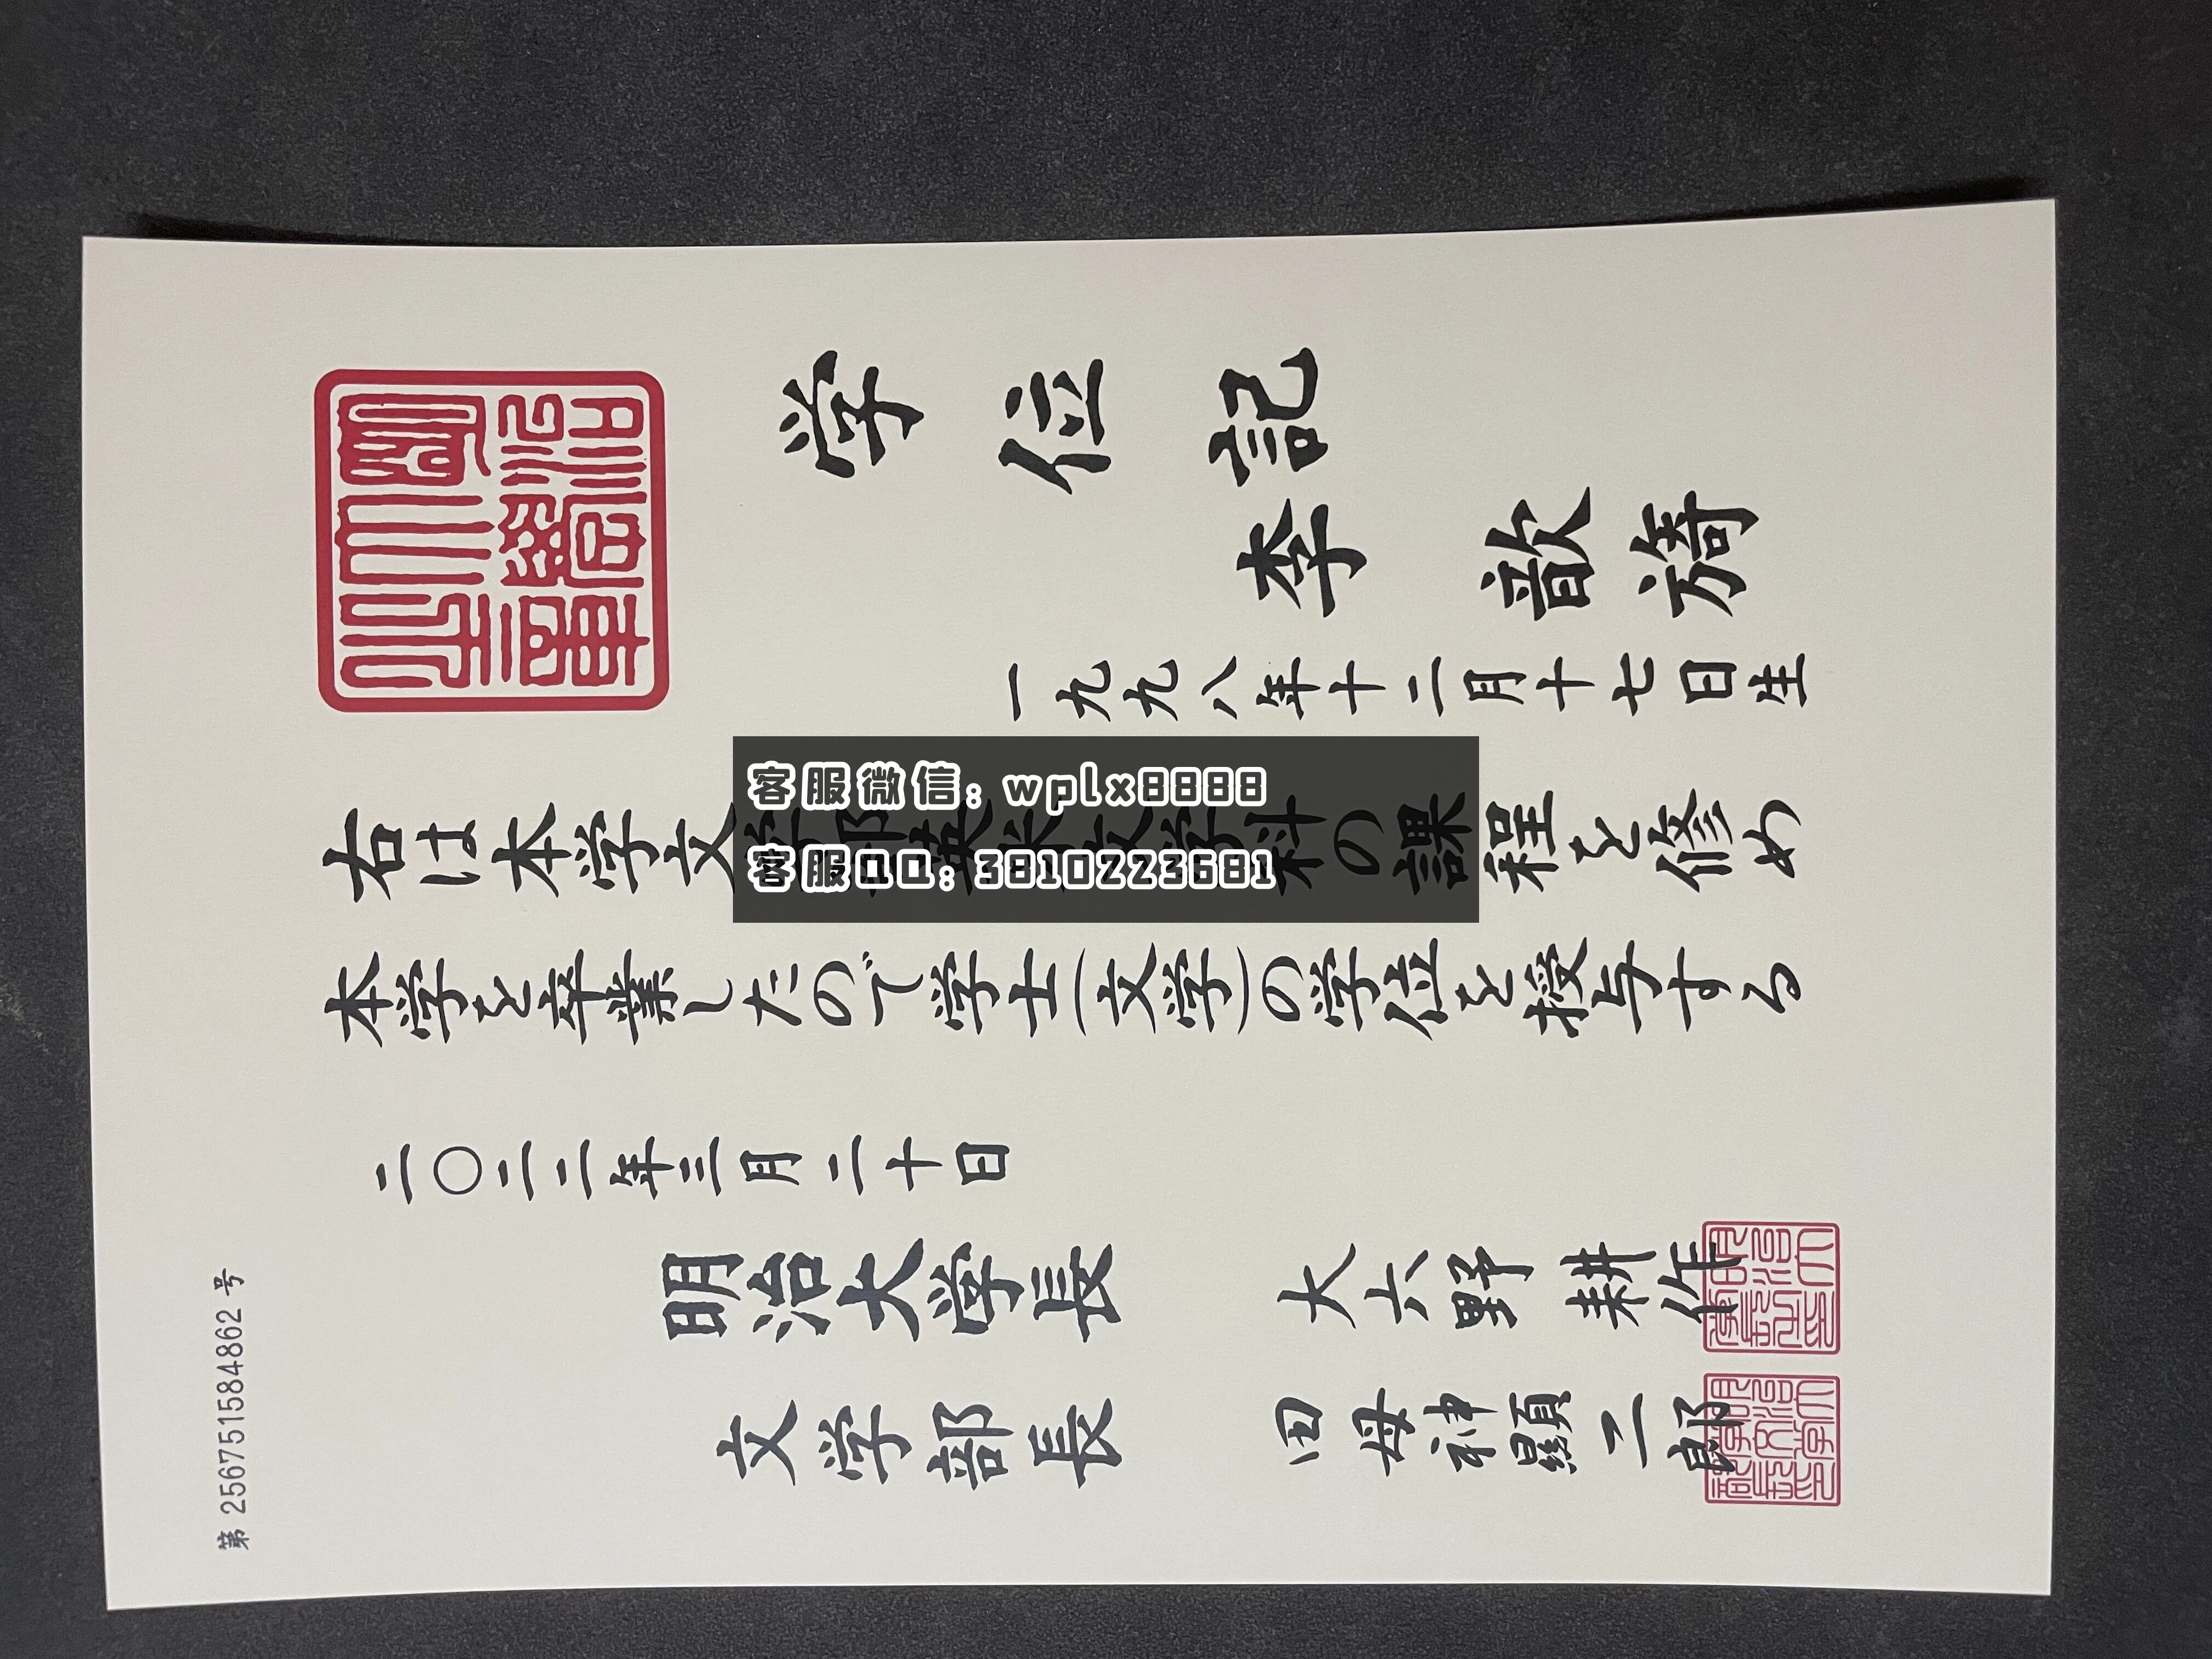 学位記
李 歆旑
一九九八年十二月十七日生
右は本学文学部英米文学科の課程を修め
本学を卒業したので学士(文学)の学位を授与する
二〇二二年三月二十日
明治大学長 大六野 耕作
文学部長 田母神顯二郎
第 25675151584862 号
客服微信: wplx8888
客服QQ: 3810223681